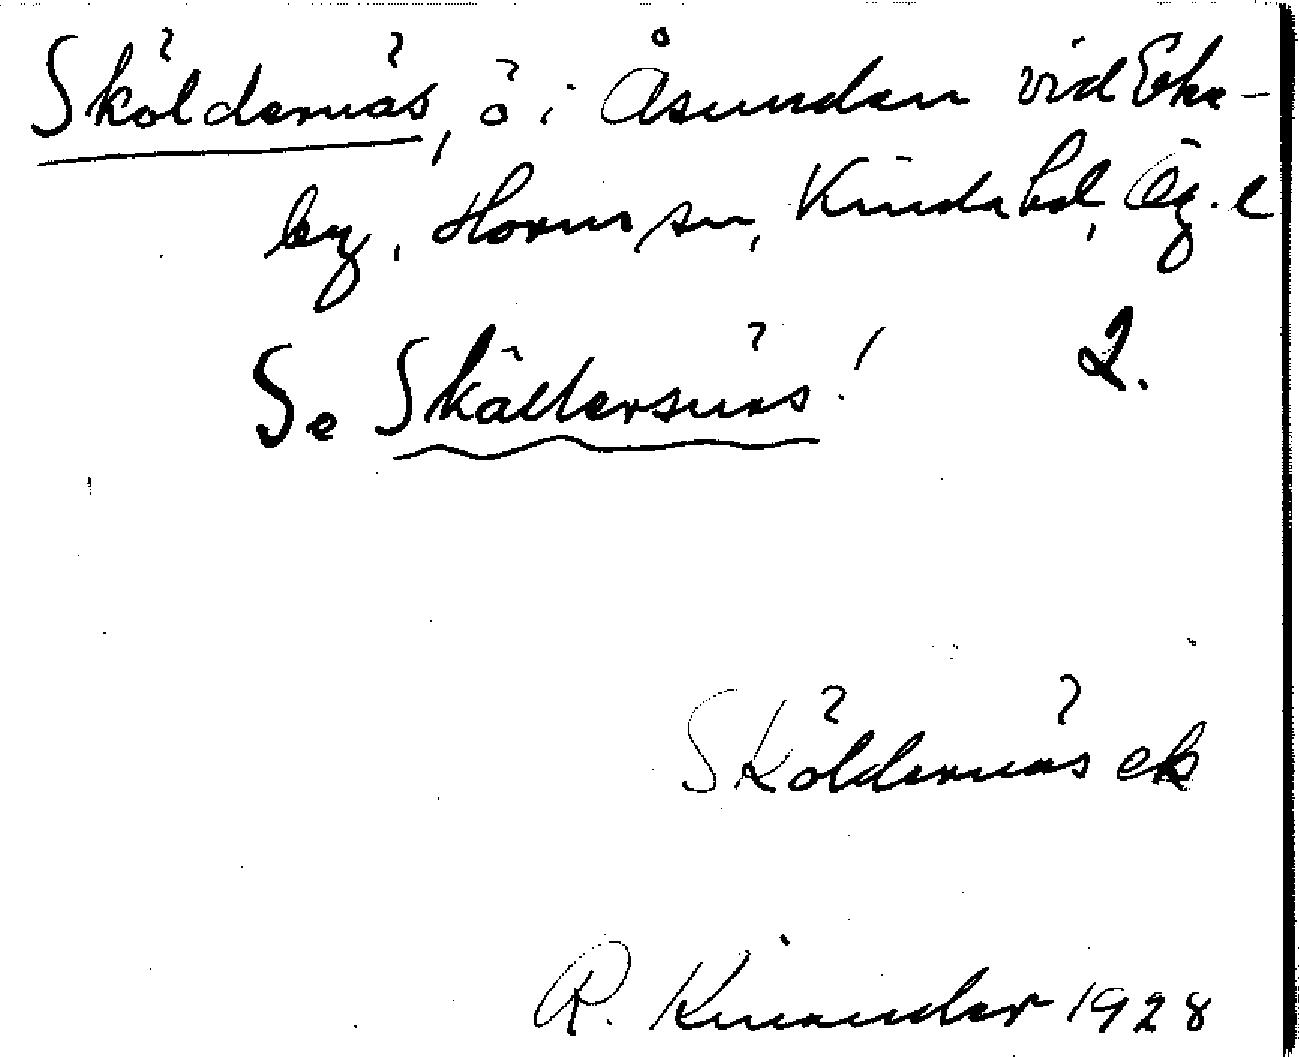 Sköldernäs, ö i Åsunden vid Eke-
by, Horns sn, Kinda hd, Ög. l
Se Skältersnäs!
2.
Sköldernäs ek
R. Kinander 1928